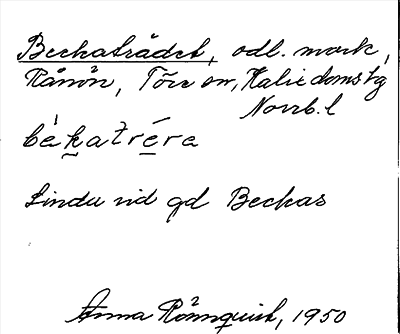 Beckaträdet, odl. mark,
Rånön, Töre sn, Kalix domstg
Norrb. l
bèkatréra
Linda vid gd Beckas
Anna Rönnquist, 1950